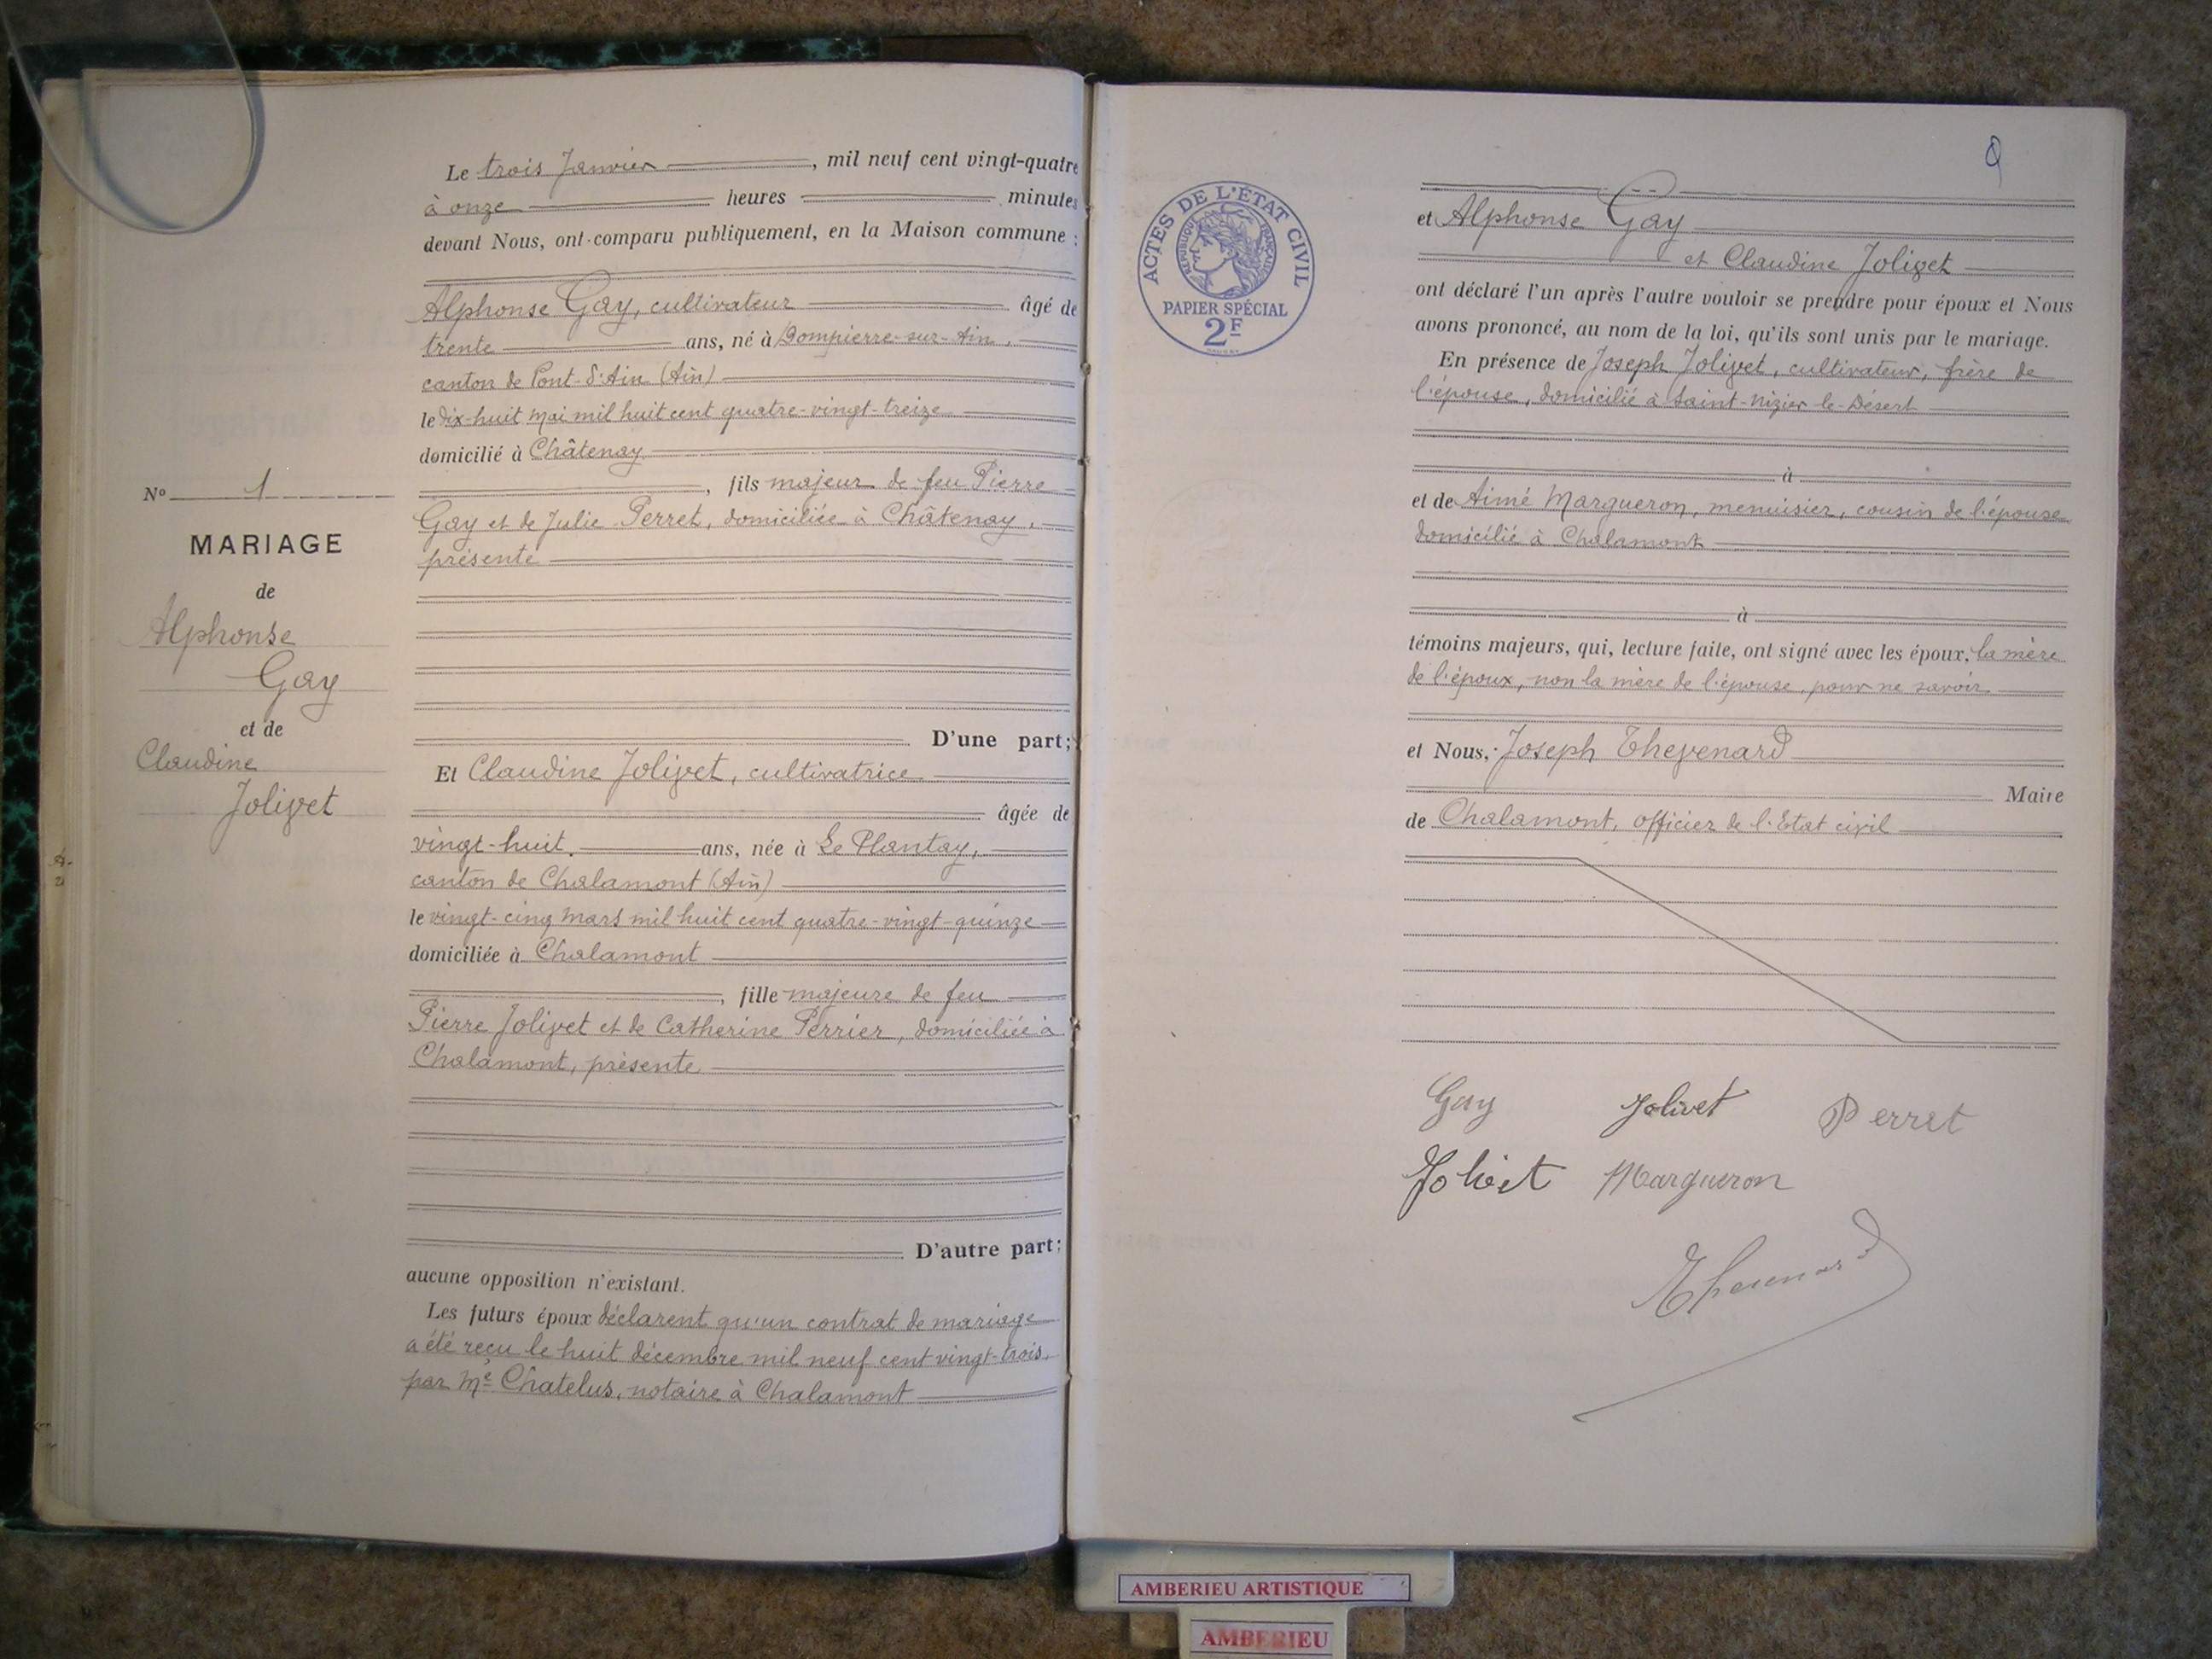 Le trois Janvier, mil neuf cent vingt-quatre
à onze heures minutes
devant Nous, ont comparu publiquement, en la Maison commune :
Alphonse Gay, cultivateur âgé de
trente ans, né à Dompierre-sur-Ain,
canton de Pont-d'Ain (Ain)
le dix-huit Mai mil huit cent quatre-vingt-treize
domicilié à Châtenay
, fils majeur de feu Pierre
Gay et de Julie Perret, domiciliée à Châtenay,
présente
D'une part;
Et Claudine Jolivet, cultivatrice
âgée de
vingt-huit ans, née à Le Plantay,
canton de Chalamont (Ain)
le vingt-cinq Mars mil huit cent quatre-vingt-quinze
domiciliée à Chalamont
, fille majeure de feu
Pierre Jolivet et de Catherine Perrier, domiciliée à
Chalamont, présente
D'autre part;
aucune opposition n'existant.
Les futurs époux déclarent qu'un contrat de mariage
a été reçu le huit décembre mil neuf cent vingt-trois,
par Me Chatelus, notaire à Chalamont
No 1
MARIAGE
de
Alphonse
Gay
et de
Claudine
Jolivet
ACTES DE L'ÉTAT CIVIL
RÉPUBLIQUE FRANÇAISE
PAPIER SPÉCIAL
2F
et Alphonse Gay
et Claudine Jolivet
ont déclaré l'un après l'autre vouloir se prendre pour époux et Nous
avons prononcé, au nom de la loi, qu'ils sont unis par le mariage.
En présence de Joseph Jolivet, cultivateur, frère de
l'épouse, domicilié à Saint-Nizier-le-Désert
à
et de Aimé Margueron, menuisier, cousin de l'épouse
domicilié à Chalamont
à
témoins majeurs, qui, lecture faite, ont signé avec les époux, la mère
de l'époux, non la mère de l'épouse, pour ne savoir
et Nous, Joseph Thevenard
Maire
de Chalamont, officier de l'Etat civil
Gay Jolivet Perret
Jolivet Margueron
Thevenard
AMBERIEU ARTISTIQUE
AMBERIEU